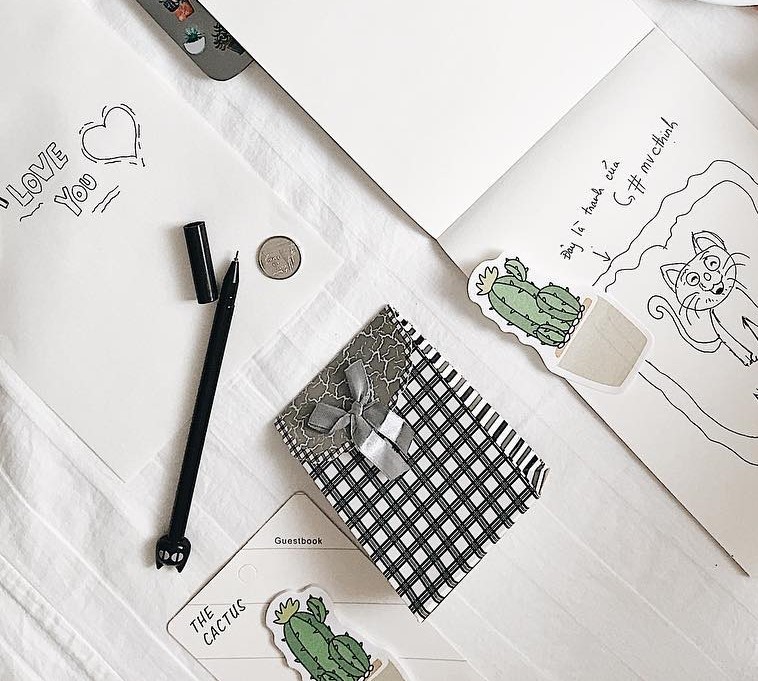 I LOVE
YOU
Đây là tranh của
G#mvcthinh
Guestbook
THE
CACTUS